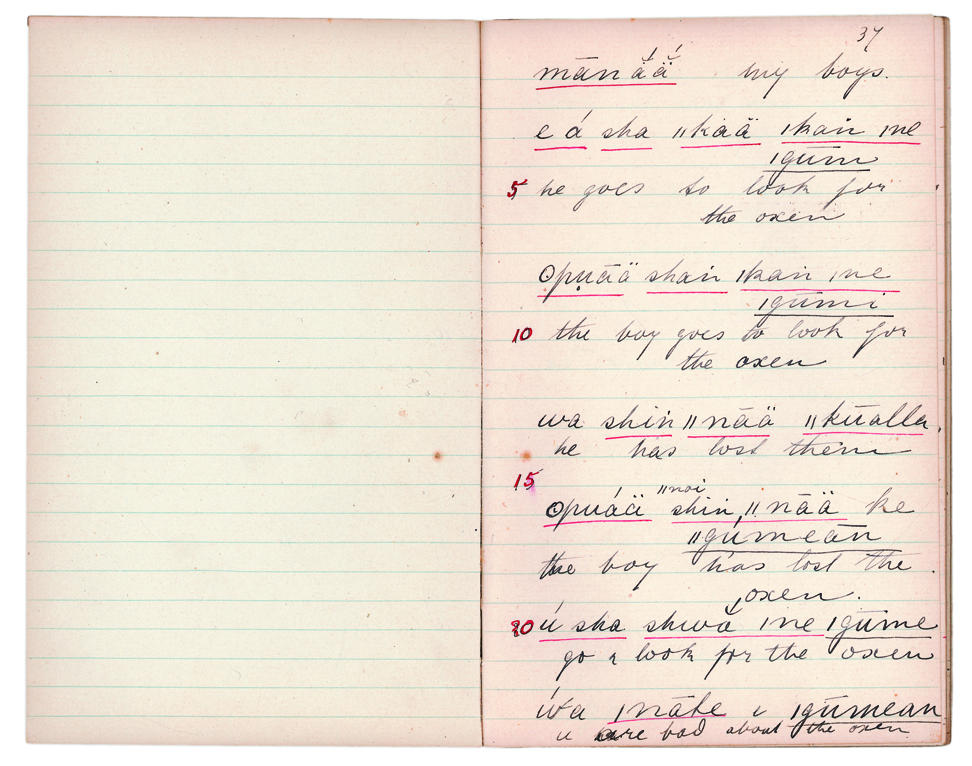 37
mānä̆ä̆́ my boys.
e á sha ǁkaä ǀkan ǀne
ǀgūm
5 he goes to look for
the oxen
Opuāä shan ǀkan ǀne
ǀgūmi
10 the boy goes to look for
the oxen
wa shin ǁnāä ǁkūalla.
he has lost them
15
ǁnoi
Opuáä shin, ǁnāä ke
ǁgúmeān
the boy has lost the
oxen.
20 ú sha shwă ǀne ǀgūme
go & look for the oxen
úta ǀnāte u ǀgūmean
u are bad about the oxen